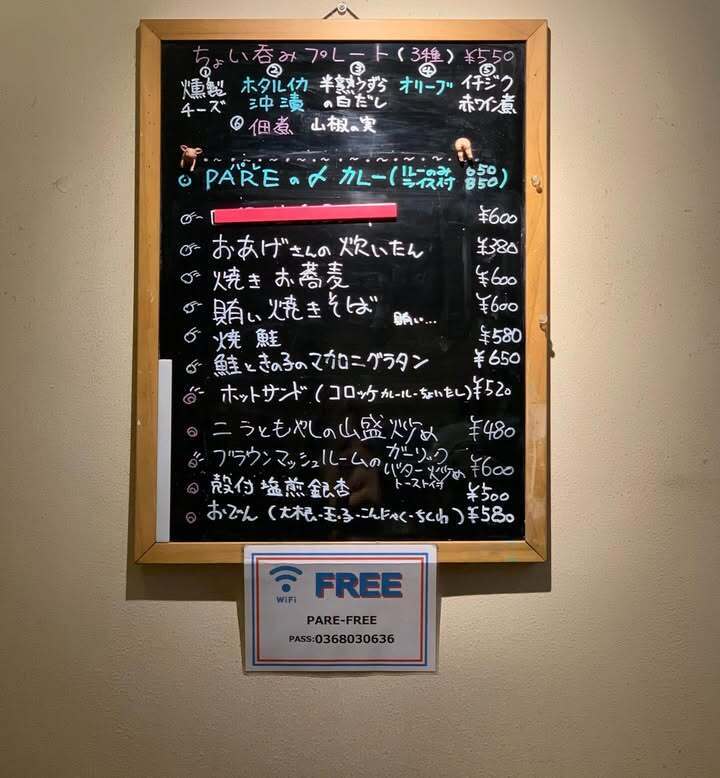 ちょい呑みプレート(3種) ¥550
① ② ③ ④ ⑤
燻製チーズ ホタルイカ沖漬 半熟うずらの白だし オリーブ イチジク赤ワイン煮
⑥ 佃煮 山椒の実
PAREの〆カレー(ルーのみ 650 ライス付 850)
¥600
おあげさんの炊いたん ¥380
焼きお蕎麦 ¥600
賄い焼きそば 賄い... ¥600
焼鮭 ¥580
鮭ときの子のマカロニグラタン ¥650
ホットサンド(コロッケカレールーちょいたし) ¥520
ニラともやしの山盛炒め ¥480
ブラウンマッシュルームのガーリックバター炒め トースト付 ¥600
殻付塩煎銀杏 ¥500
おでん(大根・玉子・こんにゃく・ちくわ) ¥580
WiFi FREE
PARE-FREE
PASS:0368030636